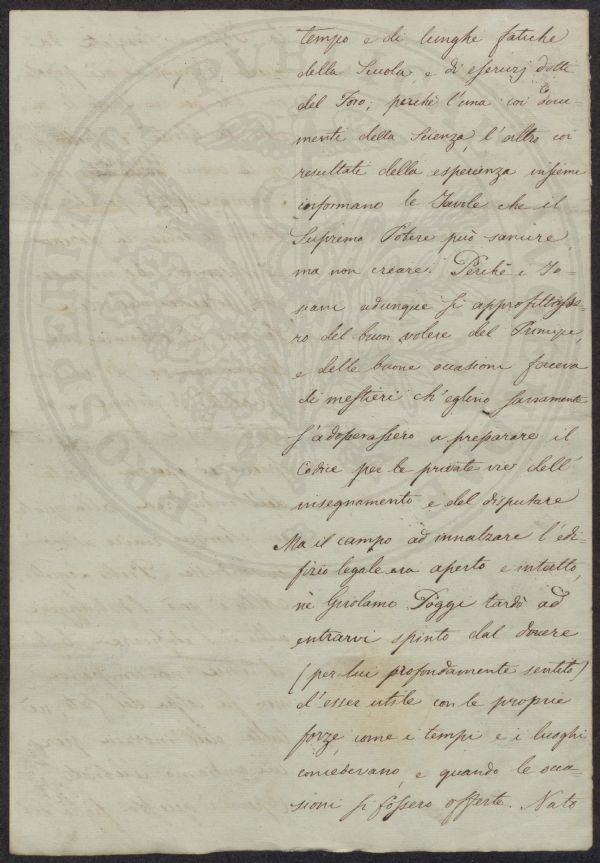 tempo e di lunghe fatiche
della Scuola, e di esercizj dotti
del Foro; perchè l'una coi docu-
menti della Scienza, l'altro coi
resultati della esperienza insieme
informano le Tavole che il
Supremo Potere può sancire
ma non creare. Perchè i To-
scani adunque si approfittasse-
ro del buon volere del Principe,
e delle buone occasioni faceva
di mestieri ch'eglino
s'adoperassero a preparare il
Codice per le private vie dell'
insegnamento e del disputare
Ma il campo ad innalzare l'edi-
fizio legale era aperto e intatto,
nè Girolamo Poggi tardò ad
entrarvi spinto dal dovere
(per lui profondamente sentito)
d'esser utile con le proprie
forze, come i tempi e i luoghi
concedevano, e quando le occa-
sioni si fossero offerte. Nato